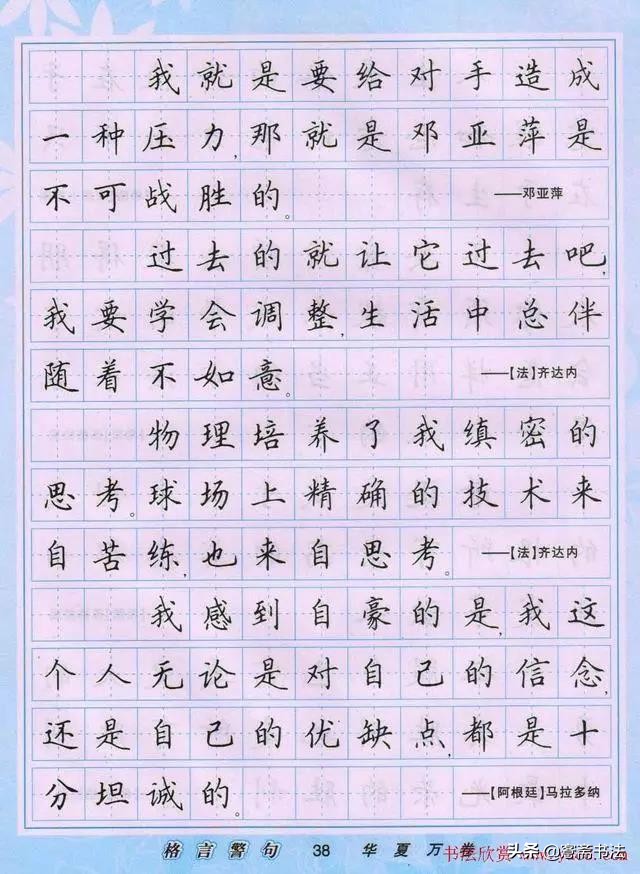 我就是要给对手造成
一种压力,那就是邓亚萍是
不可战胜的。 ——邓亚萍
过去的就让它过去吧,
我要学会调整,生活中总伴
随着不如意。 ——【法】齐达内
物理培养了我缜密的
思考。球场上精确的技术来
自苦练,也来自思考。 ——【法】齐达内
我感到自豪的是,我这
个人无论是对自己的信念,
还是自己的优缺点,都是十
分坦诚的。 ——【阿根廷】马拉多纳
格言警句 38 华夏万卷
书法欣赏
头条@寄斋书法